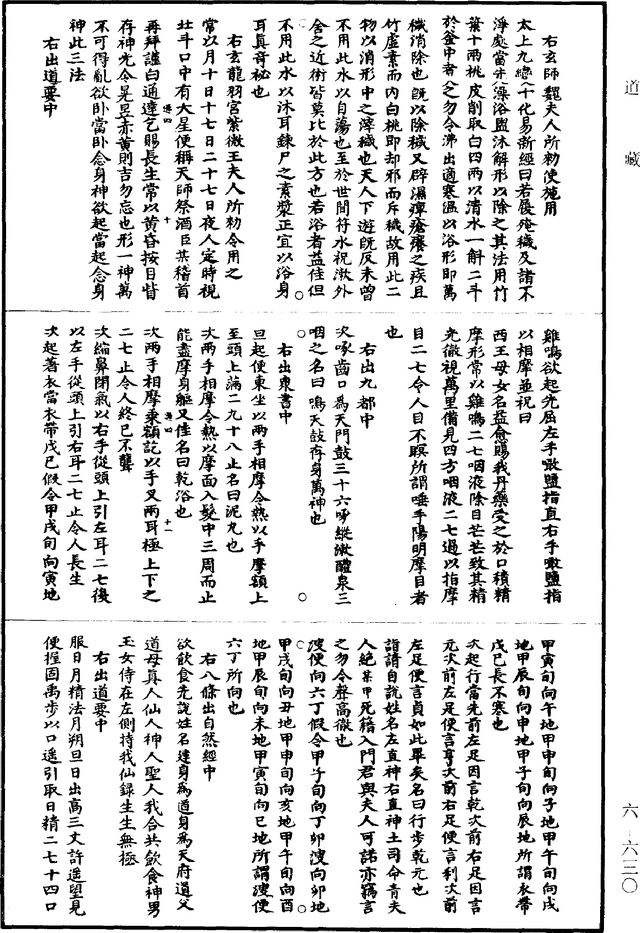 道藏
右玄師魏夫人所勑使施用
太上九變十化易新經曰若履殗穢及諸不
淨處當洗澡浴盥沐解形以除之其法用竹
葉十兩桃皮削取白四兩以清水一斛二斗
於釜中煮之勿令沸出適寒溫以浴形即萬
穢消除也旣以除穢又辟濕痺瘡癢之疾且
竹虛素而內白桃即却邪而斥穢故用此二
物以消形中之滓穢也天人下遊旣反未曾
不用此水以自蕩也至於世間符水祝漱外
舍之近術皆莫比於此方也若浴者益佳但
不用此水以沐耳鍊尸之素漿正宜以浴身
耳真奇祕也
右玄龍羽宮紫微王夫人所勑令用之
常以月十日十七日二十七日夜人定時視
北斗口中有大星便稱天師祭酒臣某稽首
再拜謹白通達乞賜長生常以黃昏按目眥
存神光令晃昱赤黃則吉勿忘也形一神萬
不可得亂欲臥當臥念身神欲起當起念身
神此三法
右出道要中
雞鳴欲起先屈左手噉鹽指直右手噉鹽指
以相摩並祝曰
西王母女名益愈賜我丹藥受之於口積精
摩形常以雞鳴二七咽液除目芒芒致其精
光徹視萬里備見四方咽液二七過以指摩
目二七令人目不瞑所謂唾手陽明摩目者
也
右出九都中
次啄齒口爲天門鼓三十六呼縱漱醴泉三
咽之名曰鳴天鼓存身萬神也
右出東書中
旦起便東坐以兩手相摩令熱以手摩額上
至頭上滿二九十八止名曰泥丸也
次兩手相摩令熱以摩面入髮中三周而止
能盡摩身軀又佳名曰乾浴也
次兩手相摩乘額訖以手叉兩耳極上下之
二七止令人終已不聾
次縮鼻閉氣以右手從頭上引左耳二七後
以左手從頭上引右耳二七止令人長生
次起著衣當衣帶戊巳假令甲戌旬向寅地
甲寅旬向午地甲申旬向子地甲午旬向戌
地甲辰旬向申地甲子旬向辰地所謂衣帶
戊巳長不寒也
次起行當先前左足因言乾次前右足因言
元次前左足便言亨次前右足便言利次前
左足便言貞如此畢矣名曰行步乾元也
詣請自說姓名左直神右直神土司命青夫
人絕某甲死籍入門君與夫人可諾亦竊言
之勿令聲高徹也
溲便向六丁假令甲子旬向丁卯溲向卯地
甲戌旬向丑地甲申旬向亥地甲午旬向酉
地甲辰旬向未地甲寅旬向巳地所謂溲便
六丁所向也
右八條出自然經中
欲飲食先說姓名達身爲道身爲天府道父
道母真人仙人神人聖人我合共飲食神男
玉女侍在左側持我仙錄生生無極
右出道要中
服日月精法月朔旦日出高三丈許遥望見
便握固禹步以口遥引取日精二七十四口
六-六三〇